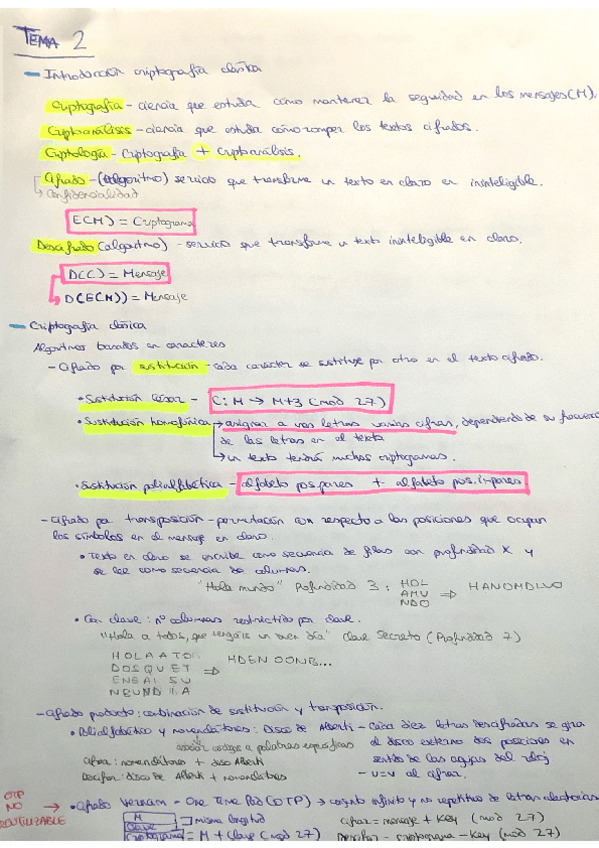 TEMA 2
Introducción criptografía clásica
Criptografía - ciencia que estudia cómo mantener la seguridad en los mensajes (M).
Criptoanálisis - ciencia que estudia cómo romper los textos cifrados.
Criptología - Criptografía + Criptoanálisis.
Cifrado - (algoritmo) servicio que transforma un texto en claro en ininteligible.
Confidencialidad
E(M) = Criptograma
Descifrado (algoritmo) - servicio que transforma un texto ininteligible en claro.
D(C) = Mensaje
D(E(M)) = Mensaje
Criptografía clásica
Algoritmos basados en caracteres
- Cifrado por sustitución - cada carácter se sustituye por otro en el texto cifrado.
• Sustitución César - C: M → M+3 (mod 27)
• Sustitución homofónica → asignar a las letras varias cifras, dependiendo de su frecuencia
de las letras en el texto
→ un texto tendrá muchos criptogramas.
• Sustitución polialfabética - alfabeto pos. pares + alfabeto pos. impares
- Cifrado por transposición - permutación con respecto a las posiciones que ocupan
los símbolos en el mensaje en claro.
• Texto en claro se escribe como secuencia de filas con profundidad X y
se lee como secuencia de columnas.
"Hola mundo" Profundidad 3: HOL
AMU ⇒ HANOMDLUO
NDO
• Con clave: nº columnas restringido por clave.
"Hola a todos, que tengáis un buen día" clave secreto (Profundidad 7)
HOLAATO
DOSQUET ⇒ HDEN OONB...
ENGAISU
NBUENDIA
- Cifrado producto: combinación de sustitución y transposición.
• Polialfabético y nomenclátores: Disco de Alberti - Cada diez letras descifradas se gira
asociar códigos a palabras específicas el disco externo dos posiciones en
Cifrar: nomenclátores + disco Alberti sentido de las agujas del reloj
Descifrar: disco de Alberti + nomenclátores - U=V al cifrar.
OTP
NO
REUTILIZABLE
→ • Cifrado Vernam - One Time Pad (OTP) → conjunto infinito y no repetitivo de letras aleatorias
M
Clave misma longitud Cifrar = mensaje + Key (mod 27)
Criptograma = M + Clave (mod 27) Descifrar - criptograma - Key (mod 27)